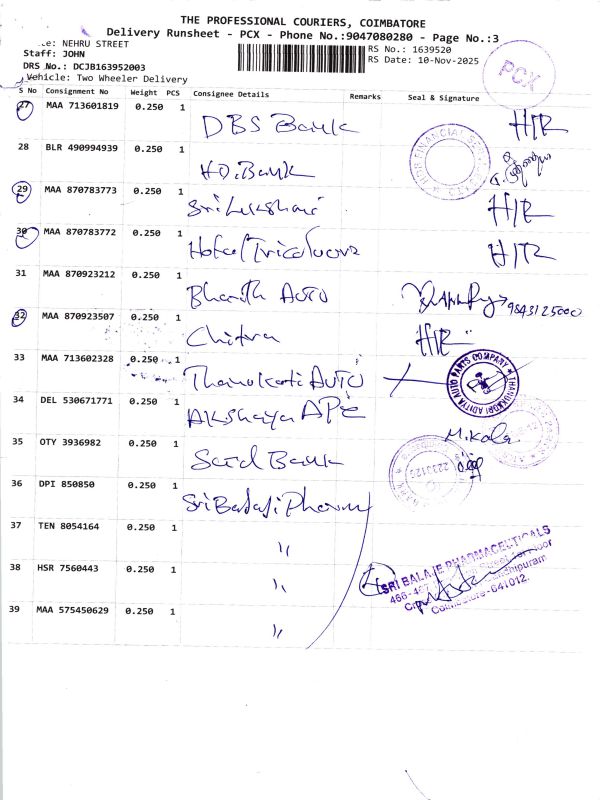 THE PROFESSIONAL COURIERS, COIMBATORE
Delivery Runsheet - PCX - Phone No.:9047080280 - Page No.:3
NEHRU STREET
Staff: JOHN
DRS No.: DCJB163952003
Vehicle: Two Wheeler Delivery
RS No.: 1639520
RS Date: 10-Nov-2025
PCX
S No Consignment No Weight PCS Consignee Details Remarks Seal & Signature
27 MAA 713601819 0.250 1 DBS Bank H/R
28 BLR 490994939 0.250 1 HD.Bank
29 MAA 870783773 0.250 1 Sri Lakshmi H/R
30 MAA 870783772 0.250 1 Hotel Tricolour H/R
31 MAA 870923212 0.250 1 Bharath Auto 9843125000
32 MAA 870923507 0.250 1 Chitra H/R
33 MAA 713602328 0.250 1 Thanukati Auto
THANUKADRI ADITYA AUTO PARTS COMPANY
34 DEL 530671771 0.250 1 Akshaya APE M.Kala
35 OTY 3936982 0.250 1 Bank
36 DPI 850850 0.250 1 Sri Balaji Pharm
37 TEN 8054164 0.250 1 "
38 HSR 7560443 0.250 1 "
SRI BALAJE PHARMACEUTICALS
Coimbatore-641012.
39 MAA 575450629 0.250 1 "